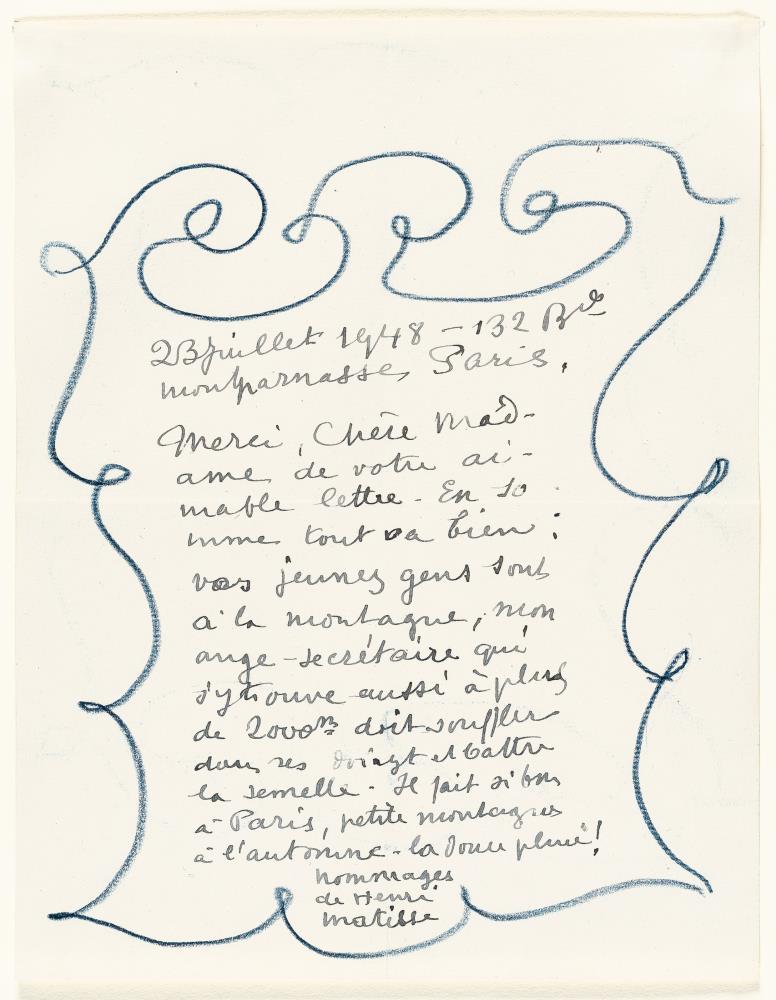 23 juillet 1948 - 132 Bvd
montparnasse, Paris.
Merci, Chère Mad-
ame de votre ai-
mable lettre - En so
mme tout va bien :
vos jeunes gens sont
à la montagne, mon
ange-secrétaire qui
s'y trouve aussi à plus
de 2000m doit souffler
dans ses doigt et battre
la semelle - Il fait si bon
à Paris, petite montagnes
à l'automne - la douce pluie!
hommages
de Henri
matisse